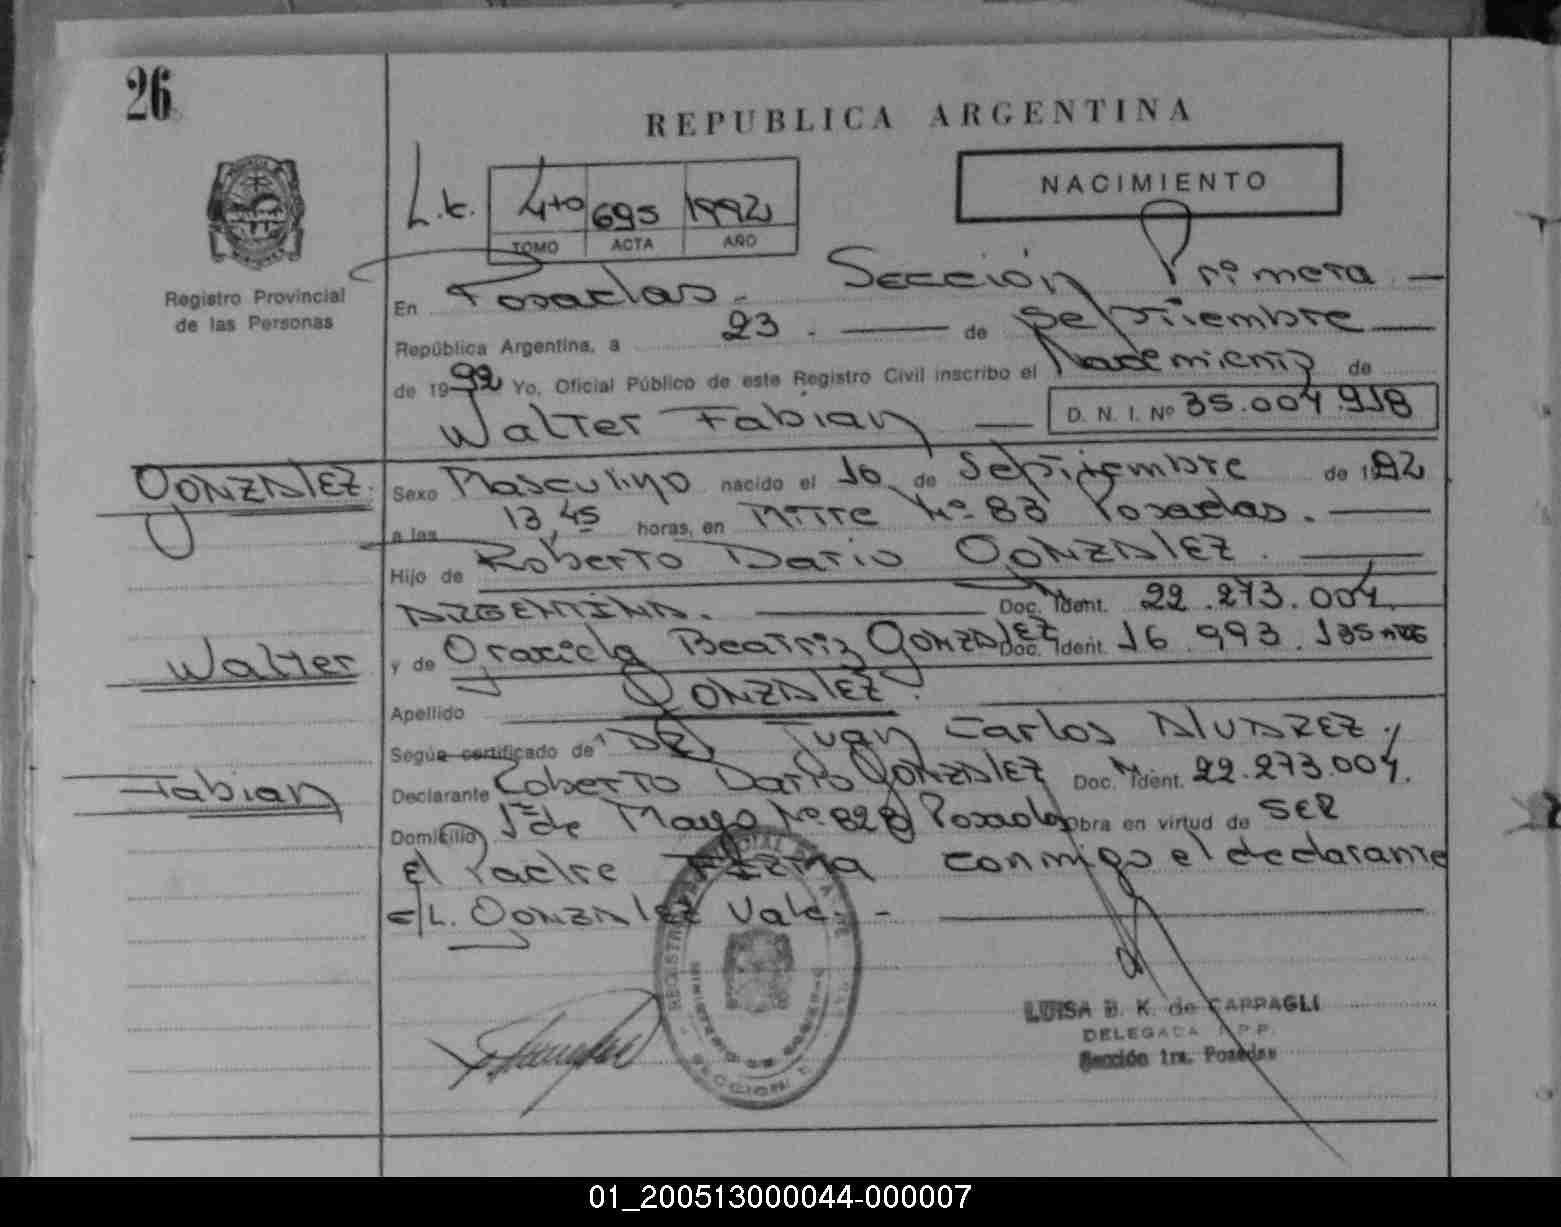 26
REPUBLICA ARGENTINA
NACIMIENTO
L.t. 4to 695 1992
TOMO ACTA AÑO
Registro Provincial
de las Personas
En Posadas - Sección Primera -
República Argentina, a 23 . — de Septiembre —
de 1992 Yo, Oficial Público de este Registro Civil inscribo el Nacimiento de
Walter Fabian — D. N. I. Nº 35.004.918
GONZALEZ
Sexo Masculino nacido el 10 de Septiembre de 1992
a las 13,45 horas, en Mitre Nº 83 Posadas. —
Hijo de Roberto Dario GONZALEZ. —
ARGENTINA. — Doc. Ident. 22.273.004.
Walter
y de Graciela Beatriz GONZALEZ Doc. Ident. 16.993.135
Apellido GONZALEZ.
Según certificado de DR Juan Carlos ALVAREZ.
Fabian
Declarante Roberto Dario GONZALEZ Doc. Ident. 22.273.004.
Domicilio 1º de Mayo Nº 828 Posadas Obra en virtud de SER
El Padre FIRMA conmigo el declarante
E/L. GONZALEZ Vale. -
LUISA B. K. de CAPPAGLI
DELEGADA
Sección 1ra. Posadas
01_200513000044-000007